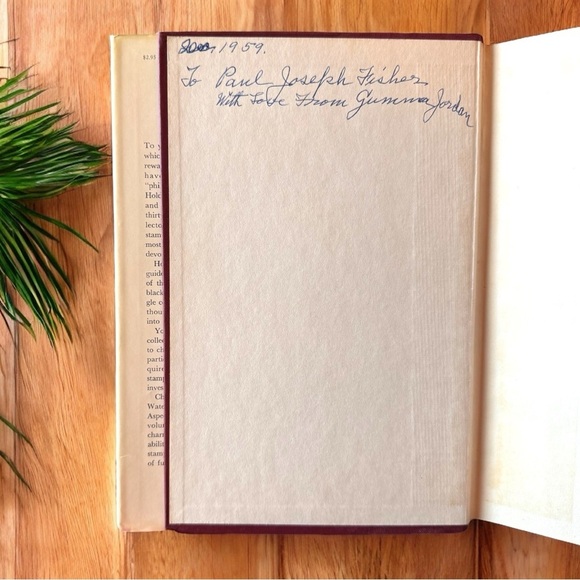 1959.
To Paul Joseph Fisher
With Love From Gumma Jordan
$2.95
To y
which
rewa
have
"phi
Hol
and
thirt
lecto
stam
most
devo
He
guide
of th
black
gle c
thou
into
Yo
collec
to ch
partic
quire
stamp
inves
Ch
Wate
Aspe
volu
charr
abili
stam
of fu